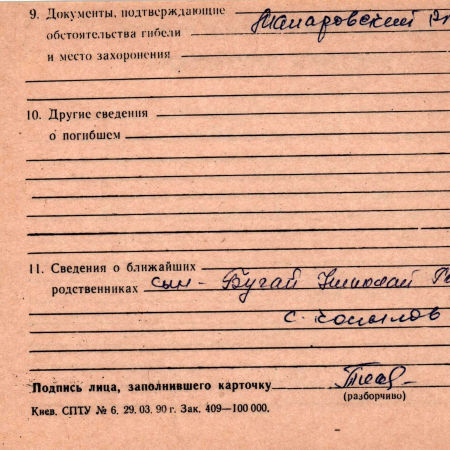 9. Документы, подтверждающие
обстоятельства гибели
и место захоронения
10. Другие сведения
о погибшем
11. Сведения о ближайших
родственниках сын - Бугай Николай
с.
Подпись лица, заполнившего карточку
(разборчиво)
Киев. СПТУ № 6. 29. 03. 90 г. Зак. 409—100 000.